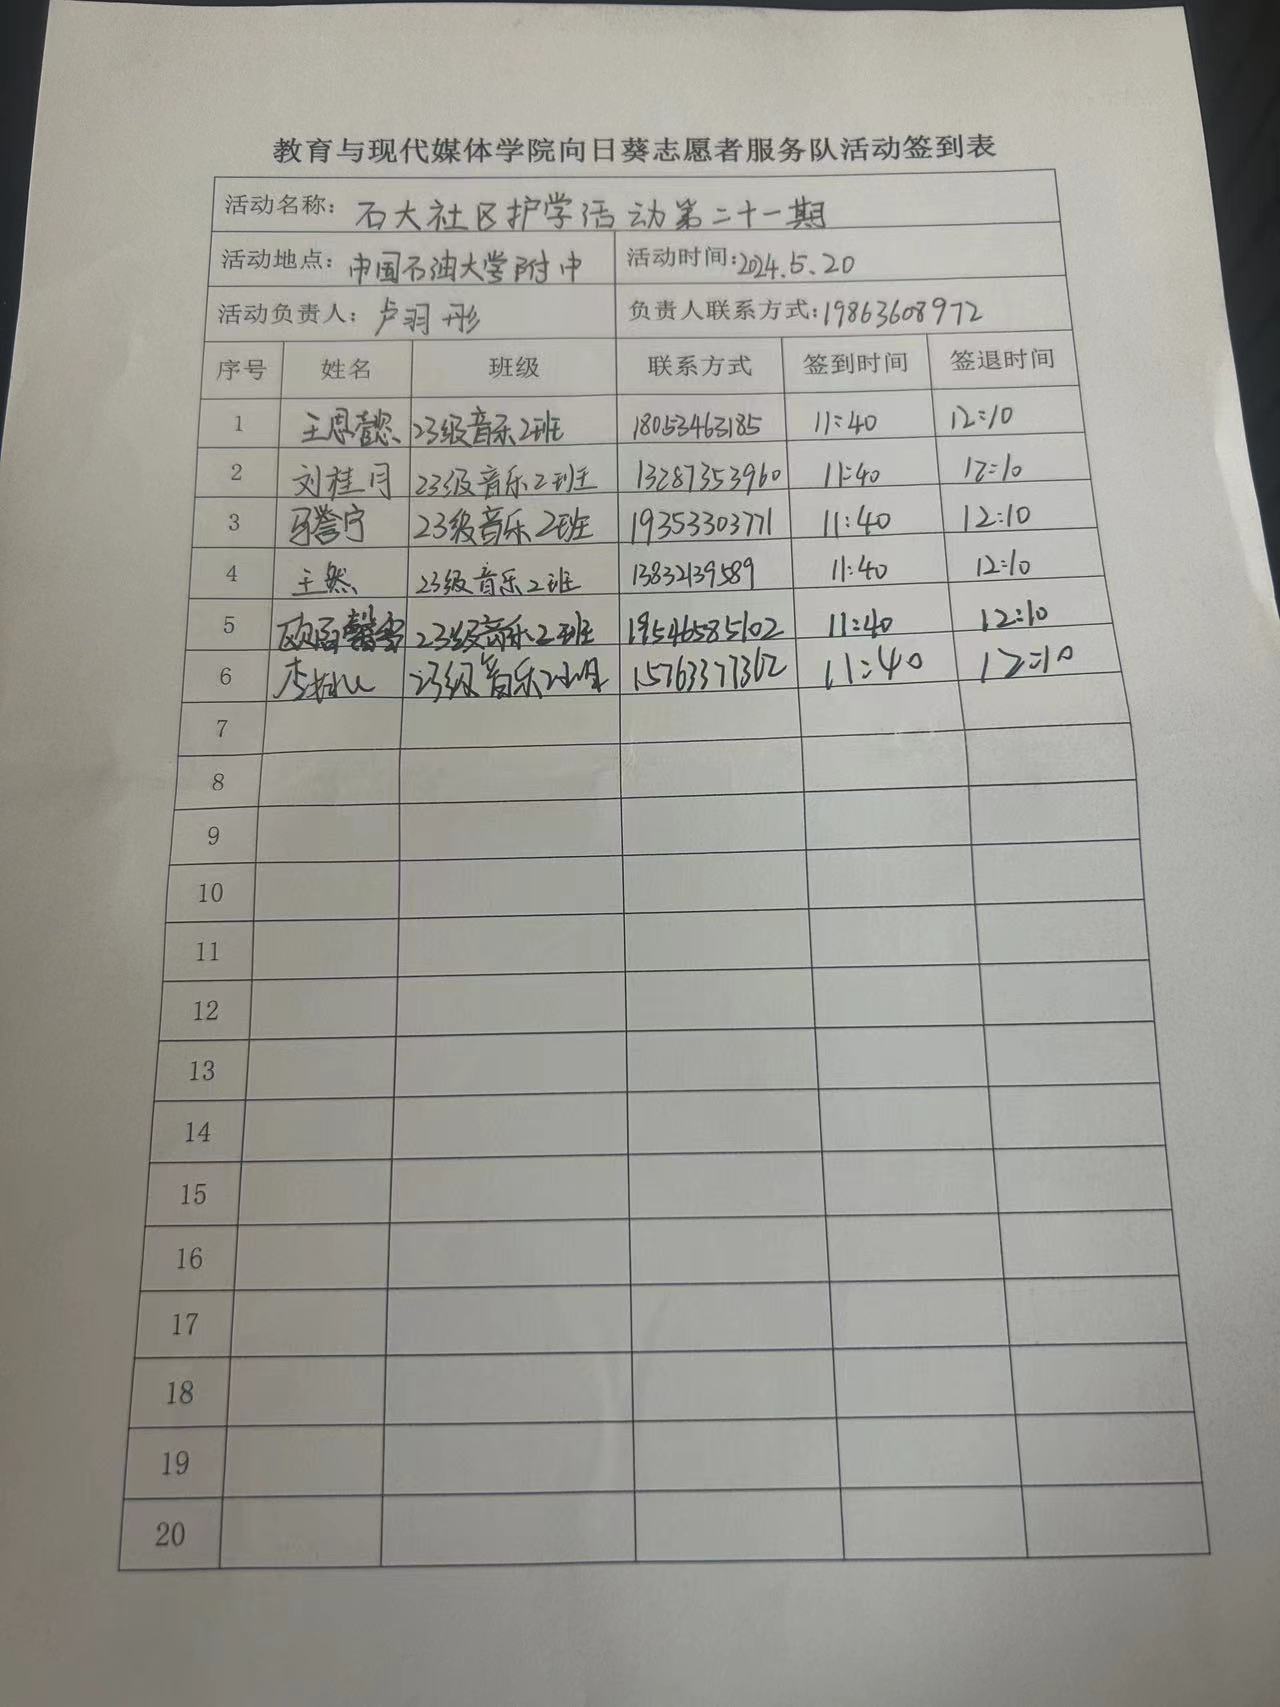 教育与现代媒体学院向日葵志愿者服务队活动签到表
活动名称：石大社区护学活动第二十一期
活动地点：中国石油大学附中 活动时间：2024.5.20
活动负责人：卢羽彤 负责人联系方式：19863608972
序号 姓名 班级 联系方式 签到时间 签退时间
1 王恩懿 23级音乐2班 18053463185 11:40 12:10
2 刘桂月 23级音乐2班 13287353960 11:40 12:10
3 马誉宁 23级音乐2班 19353303771 11:40 12:10
4 王然 23级音乐2班 13832139589 11:40 12:10
5 23级音乐2班 19546585102 11:40 12:10
6 23级音乐2班 15763377362 11:40 12:10
7
8
9
10
11
12
13
14
15
16
17
18
19
20